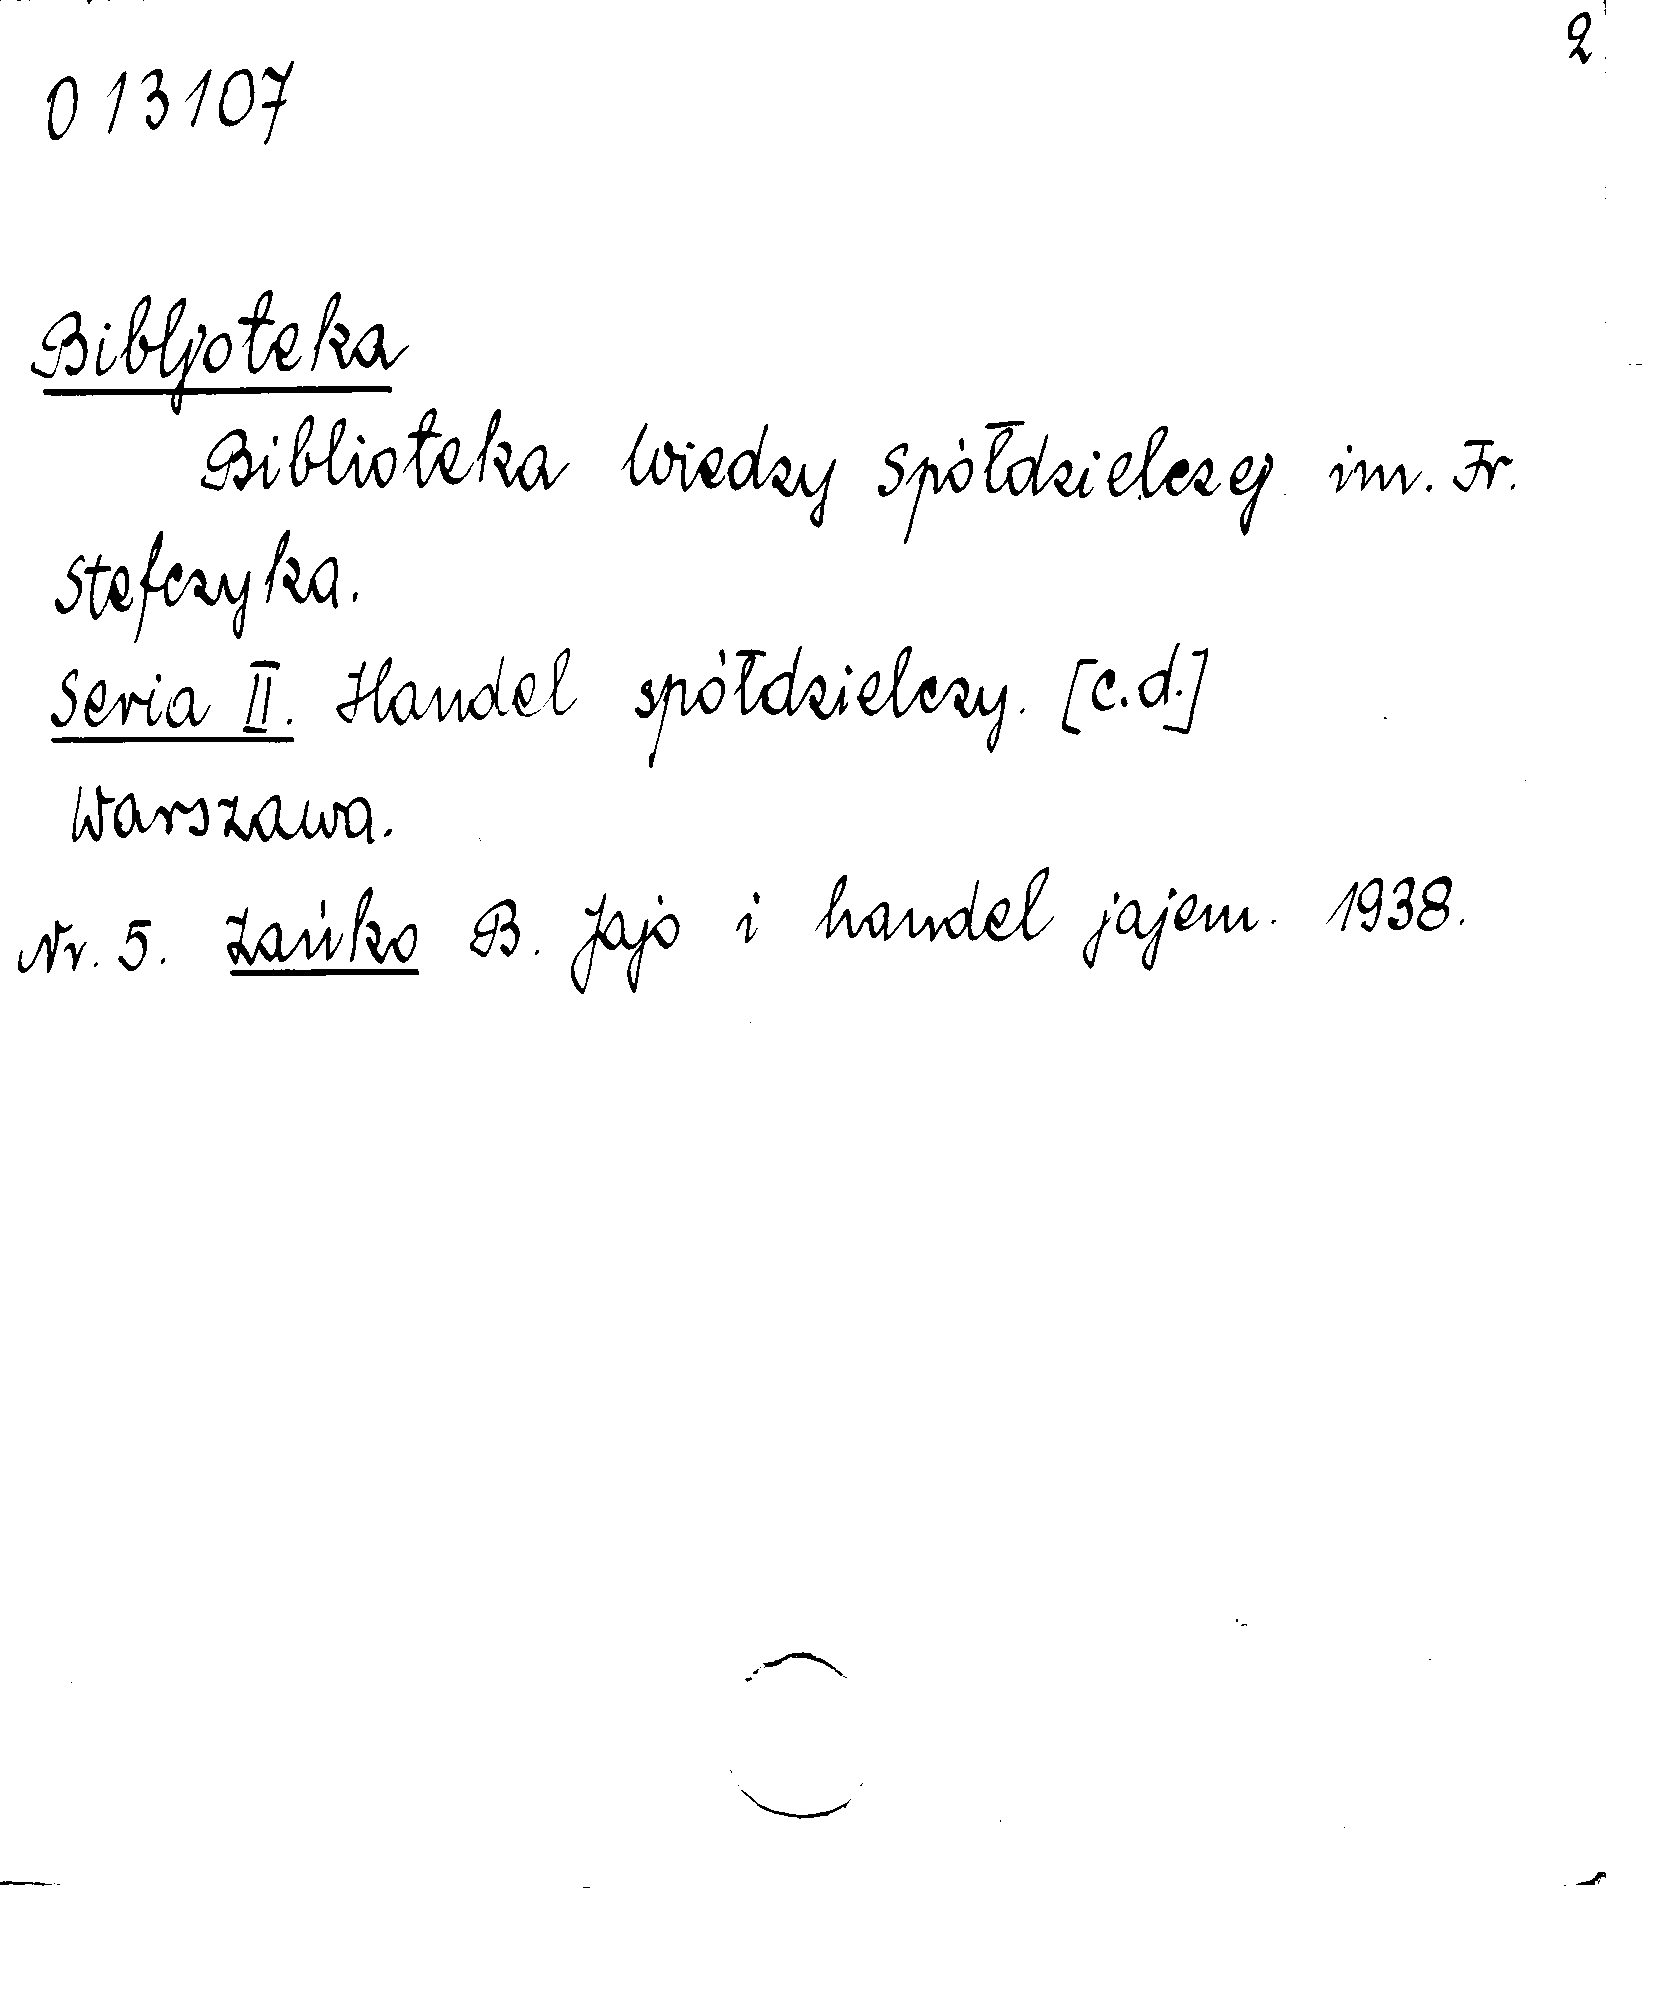 2
013107
Bibljoteka
Biblioteka Wiedzy Spółdzielczej im. Fr.
Stefczyka.
Seria II. Handel spółdzielczy. [c.d.]
Warszawa.
Nr. 5. Zańko B. Jajo i handel jajem. 1938.